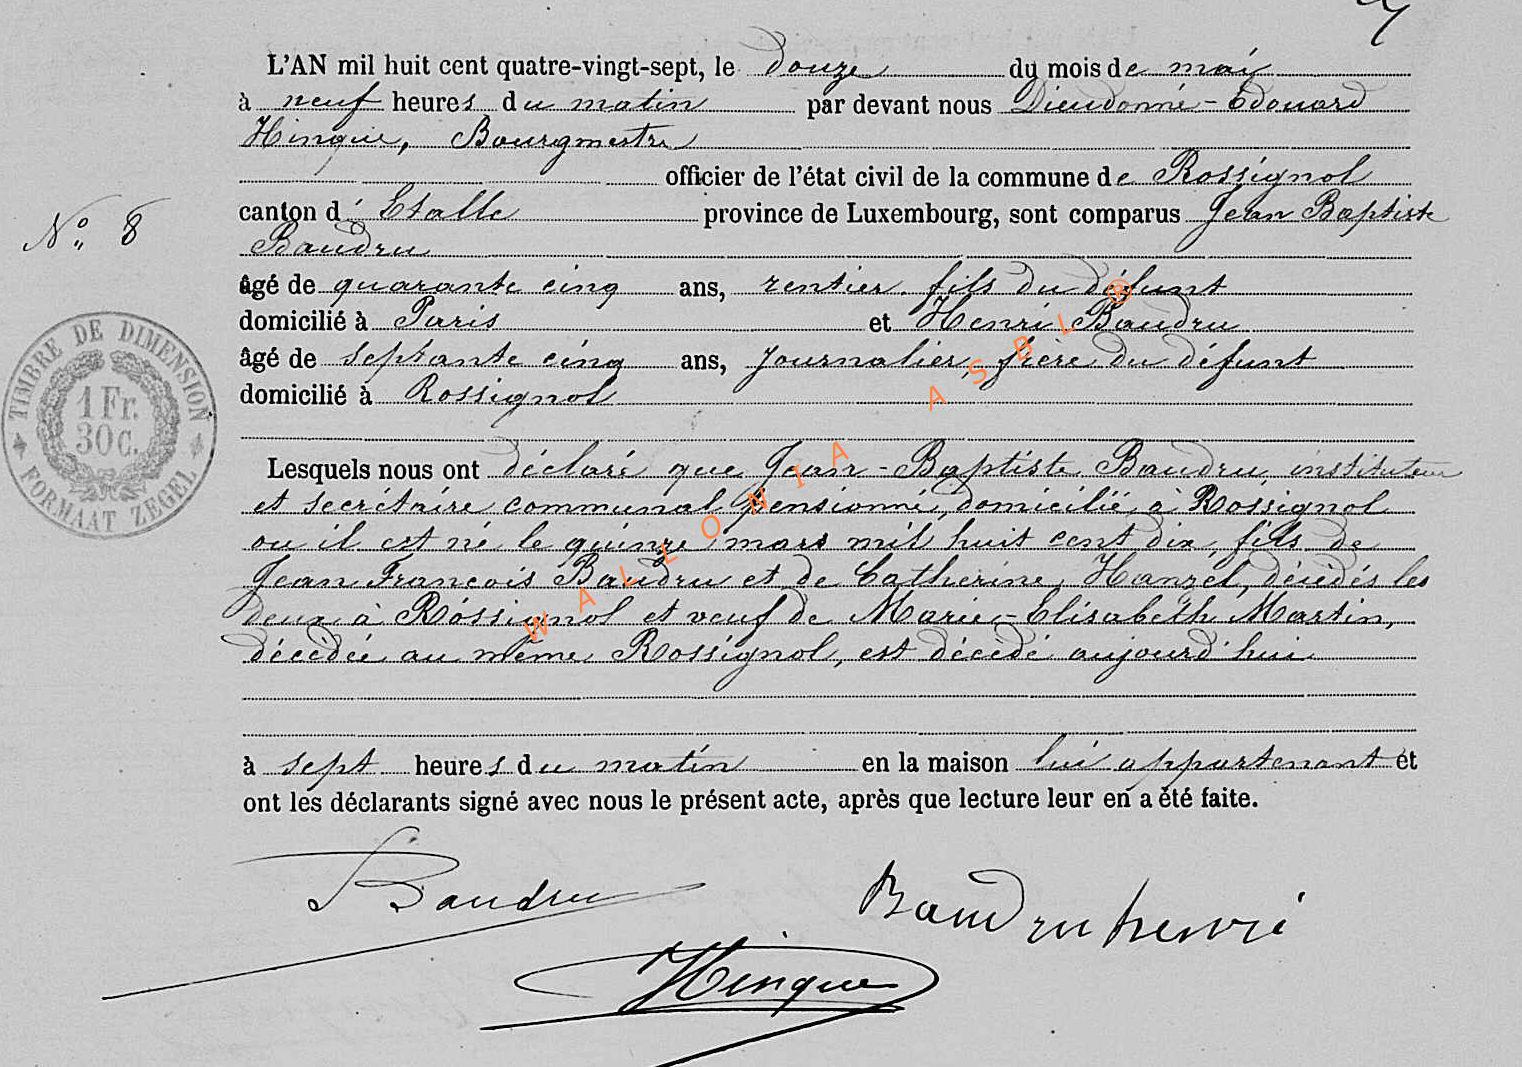 L'AN mil huit cent quatre-vingt-sept, le douze du mois de mai
à neuf heures du matin par devant nous Dieudonné-Edouard
Hinque, Bourgmestre
officier de l'état civil de la commune de Rossignol
canton d'Etalle province de Luxembourg, sont comparus Jean Baptiste
Baudru
âgé de quarante cinq ans, rentier, fils du défunt
domicilié à Paris et Henri Baudru
âgé de septante cinq ans, journalier, frère du défunt
domicilié à Rossignol
Lesquels nous ont déclaré que Jean-Baptiste Baudru, instituteur
et secrétaire communal pensionné, domicilié à Rossignol
ou il est né le quinze mars mil huit cent dix, fils de
Jean François Baudru et de Catherine Hanzel, décédés les
deux à Rossignol et veuf de Marie-Elisabeth Martin,
décédée au même Rossignol, est décédé aujourd'hui
à sept heures du matin en la maison lui appartenant et
ont les déclarants signé avec nous le présent acte, après que lecture leur en a été faite.
N° 8
TIMBRE DE DIMENSION
1 Fr.
30 C.
FORMAAT ZEGEL
WALLONIA ASBL ®
Baudru
Baudru henri
Hinque